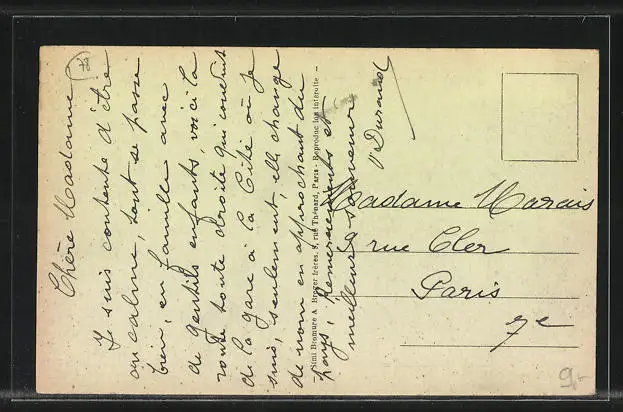 Chère Madame
Je suis contente d'être
au calme, tout se passe
bien, en famille avec
de gentils enfants, voici la
route toute droite qui conduit
de la gare à la Cité où je
suis, seulement, elle change
de nom en approchant du
pays, remerciements et
meilleurs souvenirs
Durand
Simi Bromure A. Breger frères, 9, rue Thénard, Paris - Reproduction interdite -
Madame Marais
rue Cler
Paris
7e
9.-